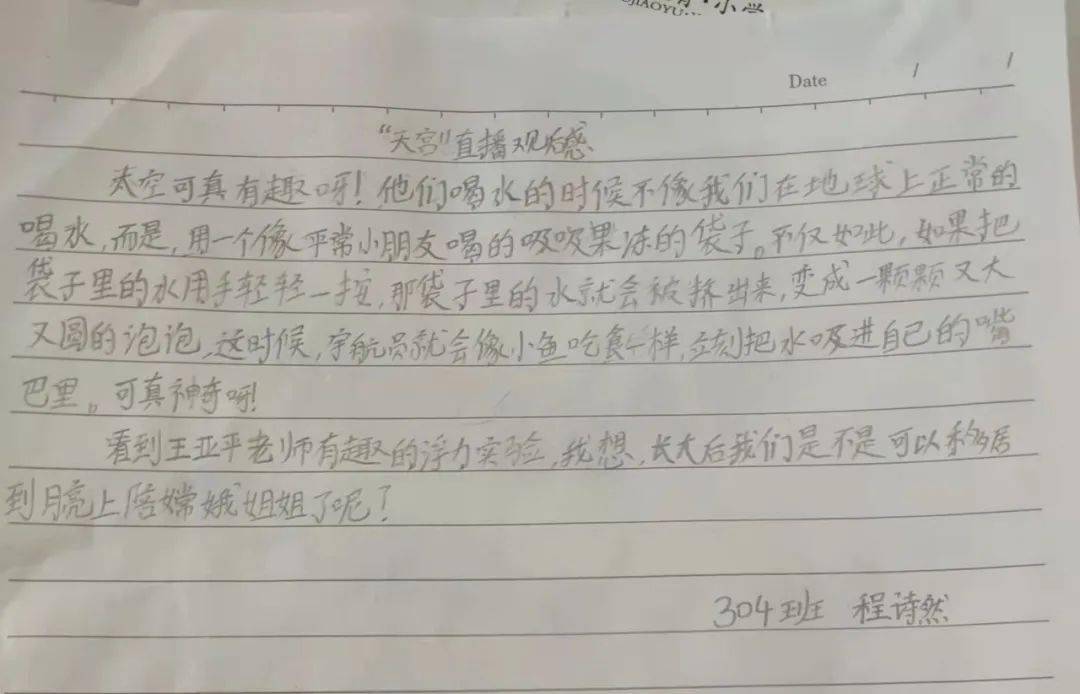 小学
JIAOYU
Date / /
“天宫”直播观后感
太空可真有趣呀！他们喝水的时候不像我们在地球上正常的
喝水，而是，用一个像平常小朋友喝的吸吸果冻的袋子。不仅如此，如果把
袋子里的水用手轻轻一按，那袋子里的水就会被挤出来，变成一颗颗又大
又圆的泡泡，这时候，宇航员就会像小鱼吃食一样，立刻把水吸进自己的嘴
巴里。可真神奇呀！
看到王亚平老师有趣的浮力实验，我想，长大后我们是不是可以移居
到月亮上陪嫦娥姐姐了呢？
304班 程诗然